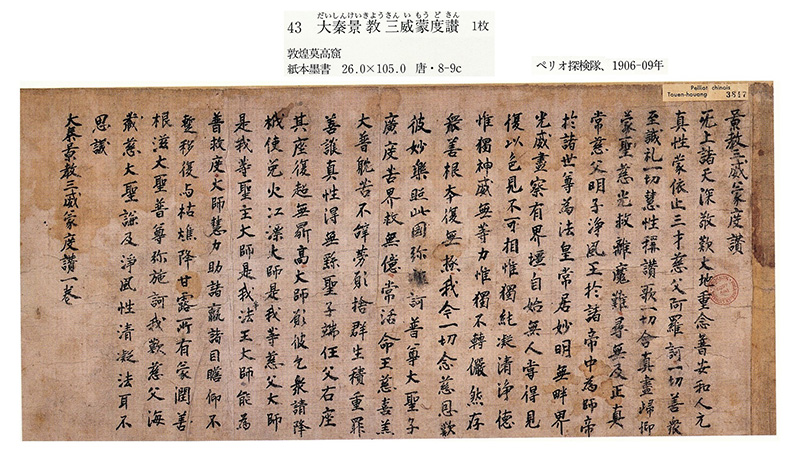 だいしんけいきようさんいもうどさん
43 大秦景教三威蒙度讃 1枚
敦煌莫高窟
紙本墨書 26.0×105.0 唐・8-9c
ペリオ探検隊、1906-09年
Pelliot chinois
Touen-houang 3847
景教三威蒙度讚
无上諸天深敬歎大地重念普安和人元
真性蒙依止三才慈父阿羅訶一切善衆
至誠礼一切慧性稱讚歌一切含真盡歸仰
蒙聖慈光救離魔難尋無及正真
常慈父明子淨風王於諸帝中為師帝
於諸世尊為法皇常居妙明無畔界
光威盡察有界壃自始無人嘗得見
復以色見不可相惟獨純凝清淨德
惟獨神威無等力惟獨不轉儼然存
衆善根本復無極我今一切念慈恩歎
彼妙樂照此國弥施訶普尊大聖子
廣度苦界救無億常活命王慈喜羔
大普躭苦不辭勞願捨群生積重罪
善護真性得無繇聖子端任父右座
其座復超無鼎高大師願彼乞衆請降
栰使免火江漂大師是我等慈父大師
是我等聖主大師是我法王大師能為
普救度大師慧力助諸羸諸目瞻仰不
蹔移復与枯燋降甘露所有蒙潤善
根滋大聖普尊弥施訶我歎慈父海
藏慈大聖謙及淨風性清凝法耳不
思議
大秦景教三威蒙度讚一卷